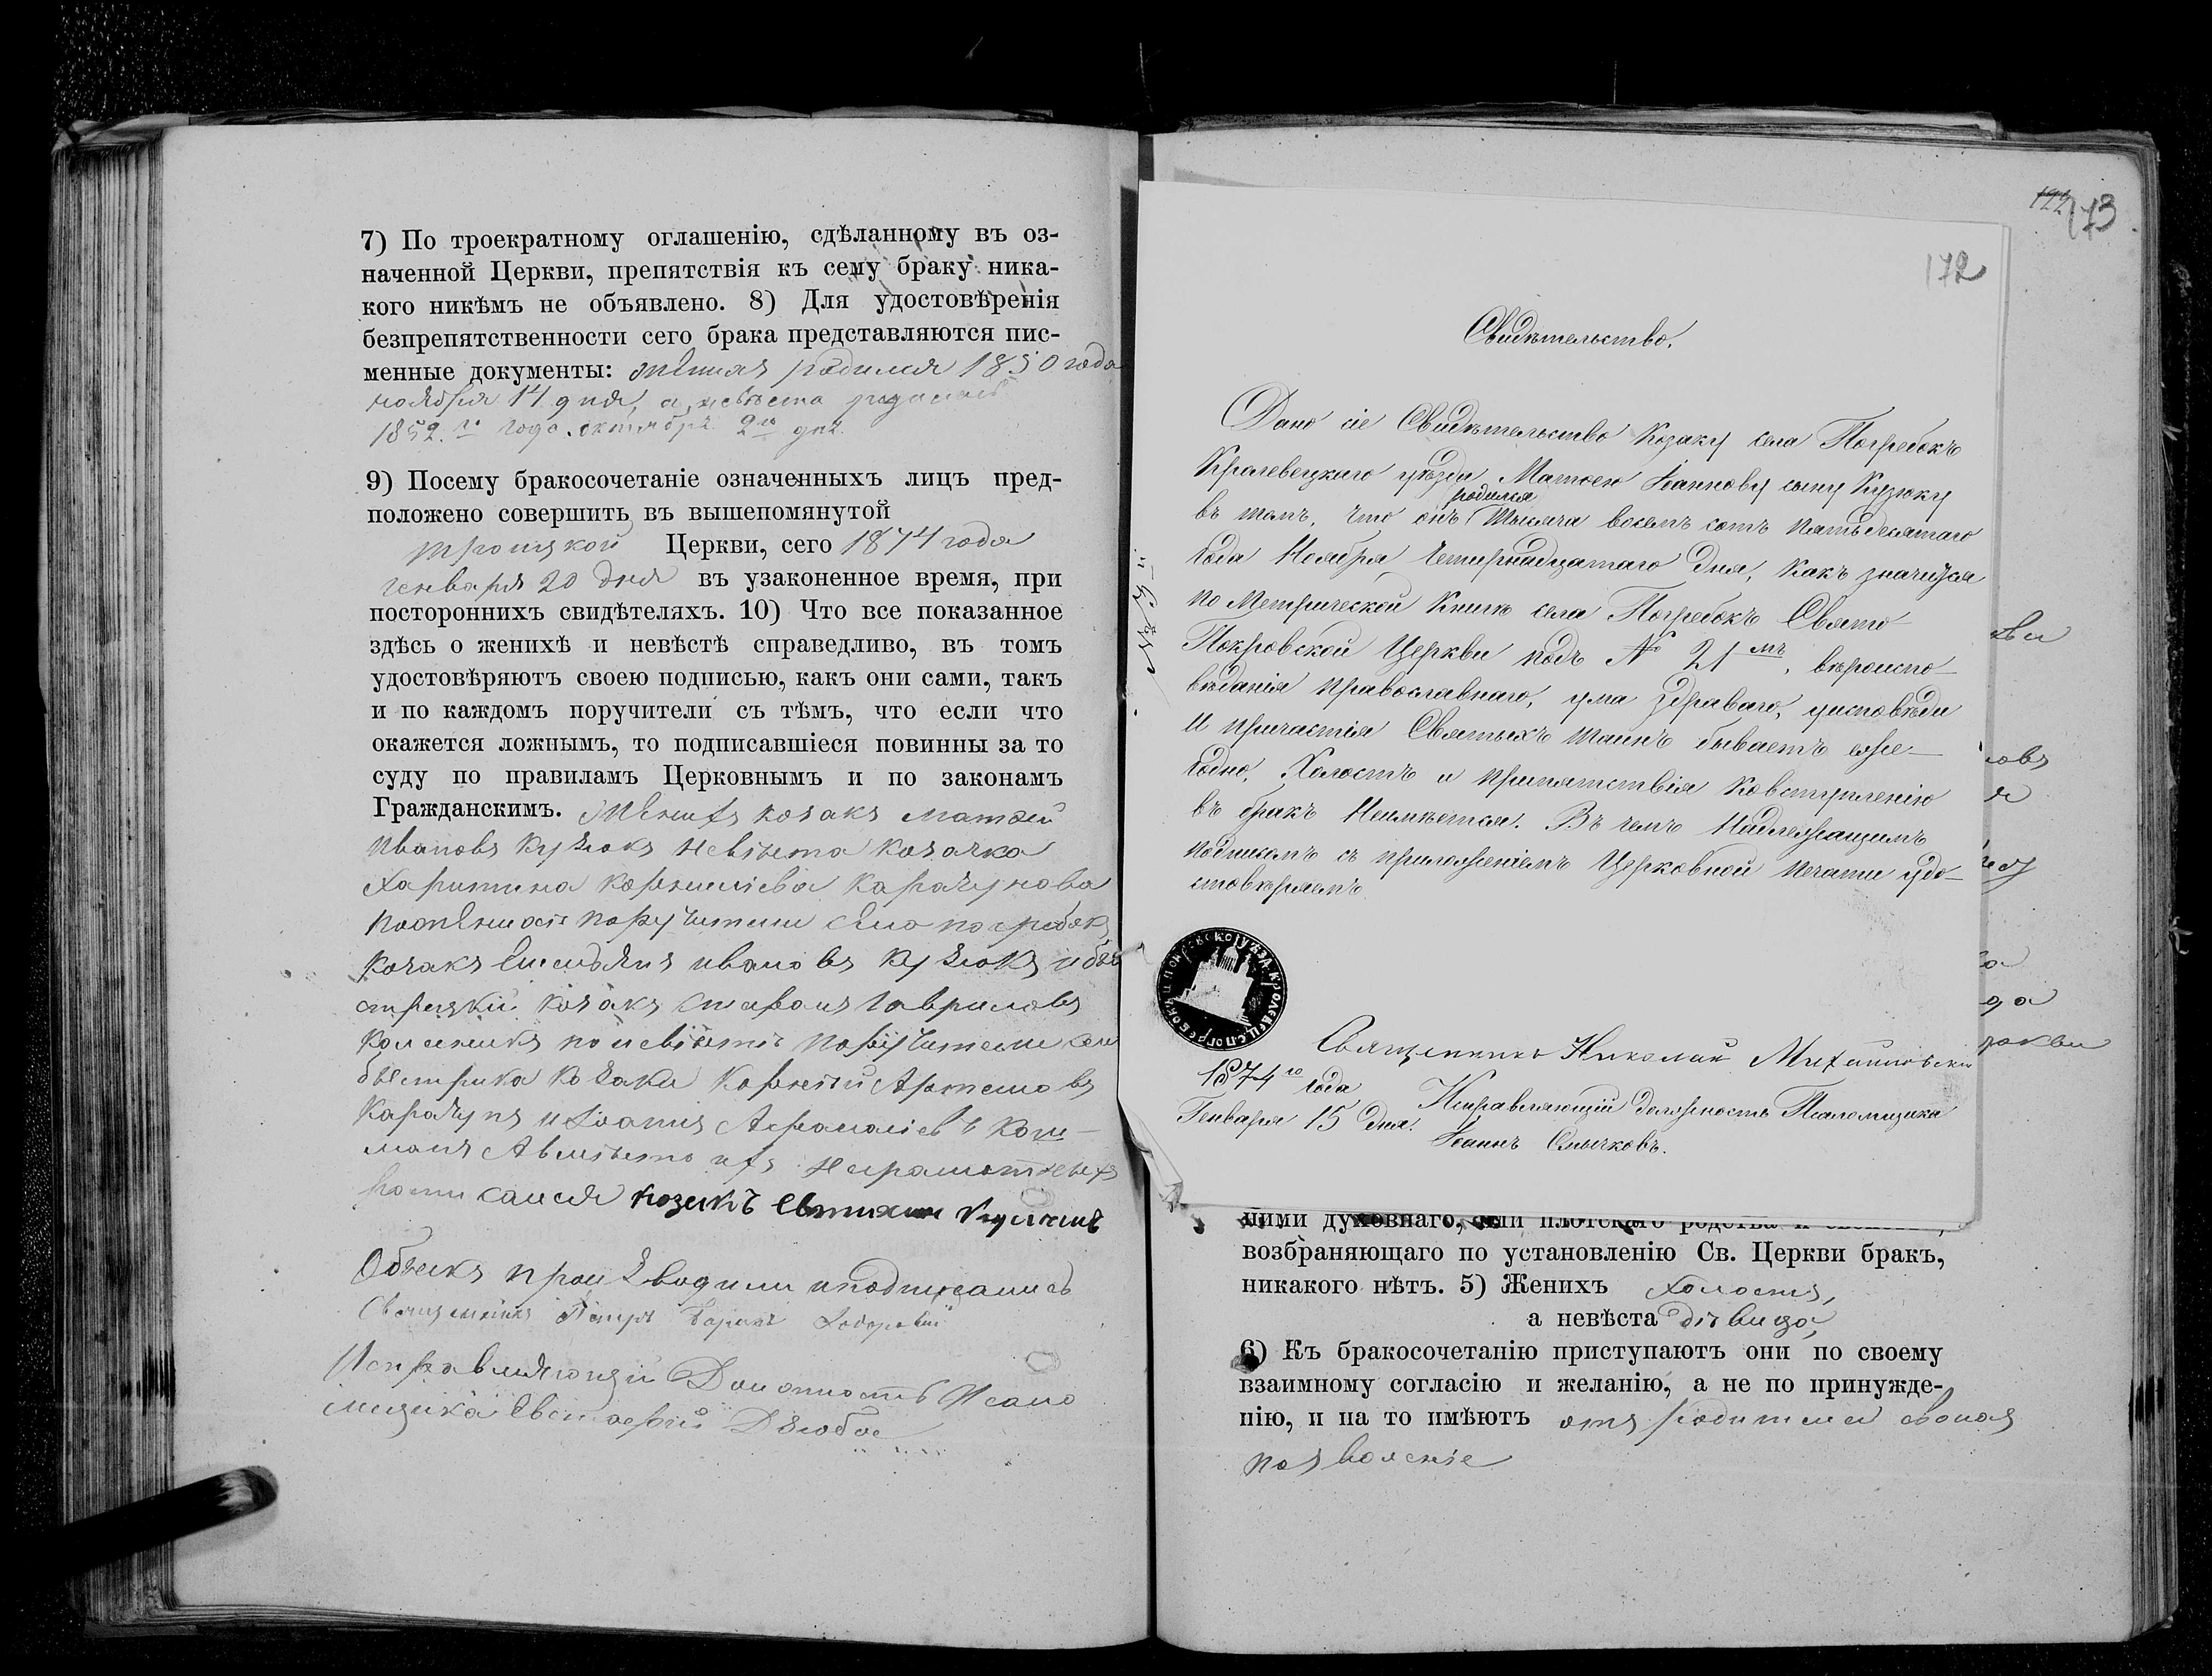 7) По троекратному оглашенію, сдѣланному въ оз-
наченной Церкви, препятствія къ сему браку ника-
кого никѣмъ не объявлено. 8) Для удостовѣренія
безпрепятственности сего брака представляются пис-
менные документы: женихъ родился 1850 года
ноября 14 дня, а невѣста родилась
1852.го года октября 2го дня
9) Посему бракосочетаніе означенныхъ лицъ пред-
положено совершить въ вышепомянутой
троицкой Церкви, сего 1874 года
генваря 20 дня въ узаконенное время, при
постороннихъ свидѣтеляхъ. 10) Что все показанное
здѣсь о женихѣ и невѣстѣ справедливо, въ томъ
удостовѣряютъ своею подписью, какъ они сами, такъ
и по каждомъ поручители съ тѣмъ, что если что
окажется ложнымъ, то подписавшіеся повинны за то
суду по правиламъ Церковнымъ и по законамъ
Гражданскимъ. Женихъ козакъ матвей
ивановъ кузюкъ невѣста козачка
харитина корниліева карачунова
по женихѣ поручители села погребокъ
козакъ ивановъ кузюкъ
козакъ стефанъ гавриловъ
по невѣстѣ поручители
быстрика козаки корнѣй Артемовъ
Карачунъ и Іоаннъ
А вмѣсто ихъ неграмотныхъ
росписался козакъ
Обыскъ производили и подписались
Священникъ Петръ
Исправляющій Должность Псало
мщика Евстафій Дзюбое
122 173
172
Свидѣтельство.
Дано сіе Свидѣтельство Козаку села Погребокъ
Кролевецкаго уѣзда Матѳею Іоаннову сыну Кузюку
родился
въ томъ, что онъ Тысяча восемъ сотъ пятьдесятаго
года Ноября Четырнадцатаго Дня, какъ значится
по Метрической Книгѣ села Погребокъ Свято
Покровской Церкви подъ № 21мъ, вѣроиспо-
вѣданія православнаго, ума здраваго, уисповѣди
и причастія Святыхъ таинъ бываетъ еже-
годно, Холостъ и препятствія ковступленію
въ бракъ Неимѣется. Въ чемъ Надлежащимъ
подписемъ съ приложеніемъ Церковной печати удо-
стовѣряемъ
Священникъ Николай Михайловскій
1874го года
Генваря 15 Дня.
Исправляющій должность Псаломщика
Іоаннъ Смычковъ.
ними духовнаго, или плотскаго родства и
возбраняющаго по установленію Св. Церкви бракъ,
никакого нѣтъ. 5) Женихъ холостъ,
а невѣста дѣвица,
6) Къ бракосочетанію приступаютъ они по своему
взаимному согласію и желанію, а не по принужде-
нію, и на то имѣютъ отъ родителей своихъ
позволеніе